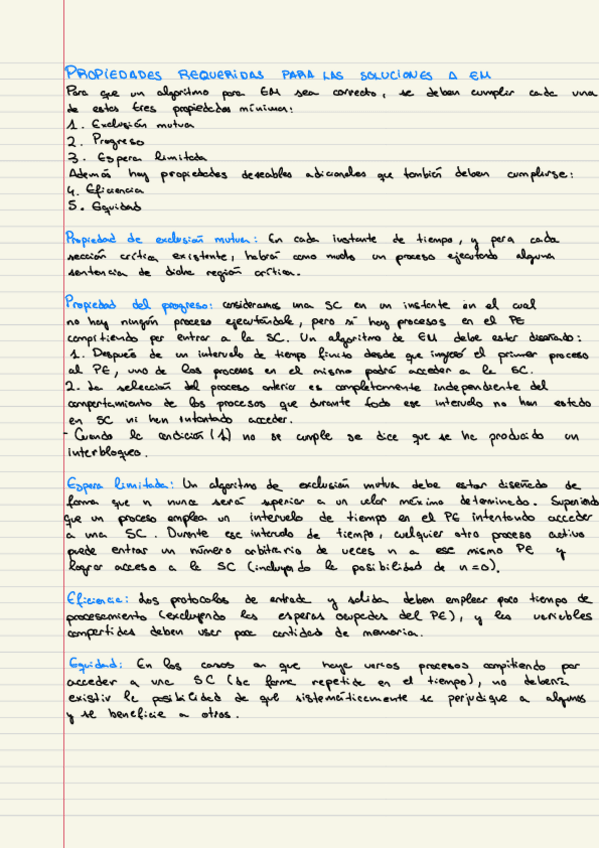 PROPIEDADES REQUERIDAS PARA LAS SOLUCIONES A EM
Para que un algoritmo para EM sea correcto, se deben cumplir cada una
de estas tres propiedades mínimas:
1. Exclusión mutua
2. Progreso
3. Espera limitada
Además hay propiedades deseables adicionales que también deben cumplirse:
4. Eficiencia
5. Equidad
Propiedad de exclusión mutua: En cada instante de tiempo, y para cada
sección crítica existente, habrá como mucho un proceso ejecutando alguna
sentencia de dicha región crítica.
Propiedad del progreso: consideramos una SC en un instante en el cual
no hay ningún proceso ejecutándola, pero sí hay procesos en el PE
compitiendo por entrar a la SC. Un algoritmo de EM debe estar diseñado:
1. Después de un intervalo de tiempo finito desde que ingresó el primer proceso
al PE, uno de los procesos en el mismo podrá acceder a la SC.
2. La selección del proceso anterior es completamente independiente del
comportamiento de los procesos que durante todo ese intervalo no han estado
en SC ni han intentado acceder.
- Cuando la condición (1) no se cumple se dice que se ha producido un
interbloqueo.
Espera limitada: Un algoritmo de exclusión mutua debe estar diseñado de
forma que n nunca será superior a un valor máximo determinado. Suponiendo
que un proceso emplea un intervalo de tiempo en el PE intentando acceder
a una SC. Durante ese intervalo de tiempo, cualquier otro proceso activo
puede entrar un número arbitrario de veces n a ese mismo PE y
lograr acceso a la SC (incluyendo la posibilidad de n=0).
Eficiencia: Los protocolos de entrada y salida deben emplear poco tiempo de
procesamiento (excluyendo las esperas ocupadas del PE), y las variables
compartidas deben usar poca cantidad de memoria.
Equidad: En los casos en que haya varios procesos compitiendo por
acceder a una SC (de forma repetida en el tiempo), no debería
existir la posibilidad de que sistemáticamente se perjudique a algunos
y se beneficie a otros.